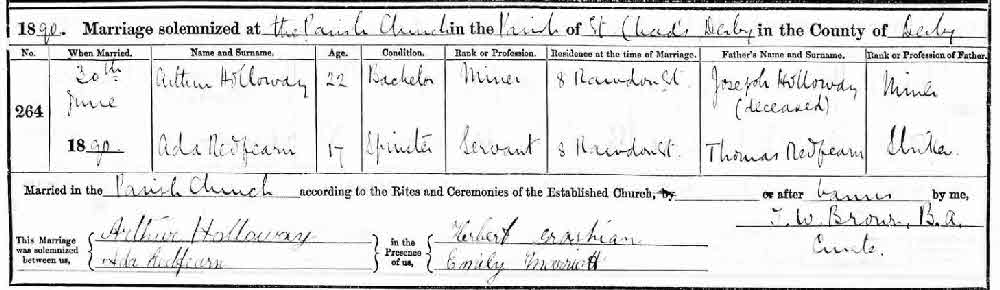 1890. Marriage solemnized at the Parish Church in the Parish of St Chad's Derby in the County of Derby
No. When Married. Name and Surname. Age. Condition. Rank or Profession. Residence at the time of Marriage. Father's Name and Surname. Rank or Profession of Father.
264 30th June 1890. Arthur Holloway 22 Bachelor Miner 8 Rawdon St. Joseph Holloway (deceased) Miner
Ada Redfearn 17 Spinster Servant 8 Rawdon St. Thomas Redfearn Striker.
Married in the Parish Church according to the Rites and Ceremonies of the Established Church, by or after banns by me,
T. W. Brown, B.A.
Curate.
This Marriage was solemnized between us, Arthur Holloway
Ada Redfearn
in the Presence of us, Herbert
Emily Marriott